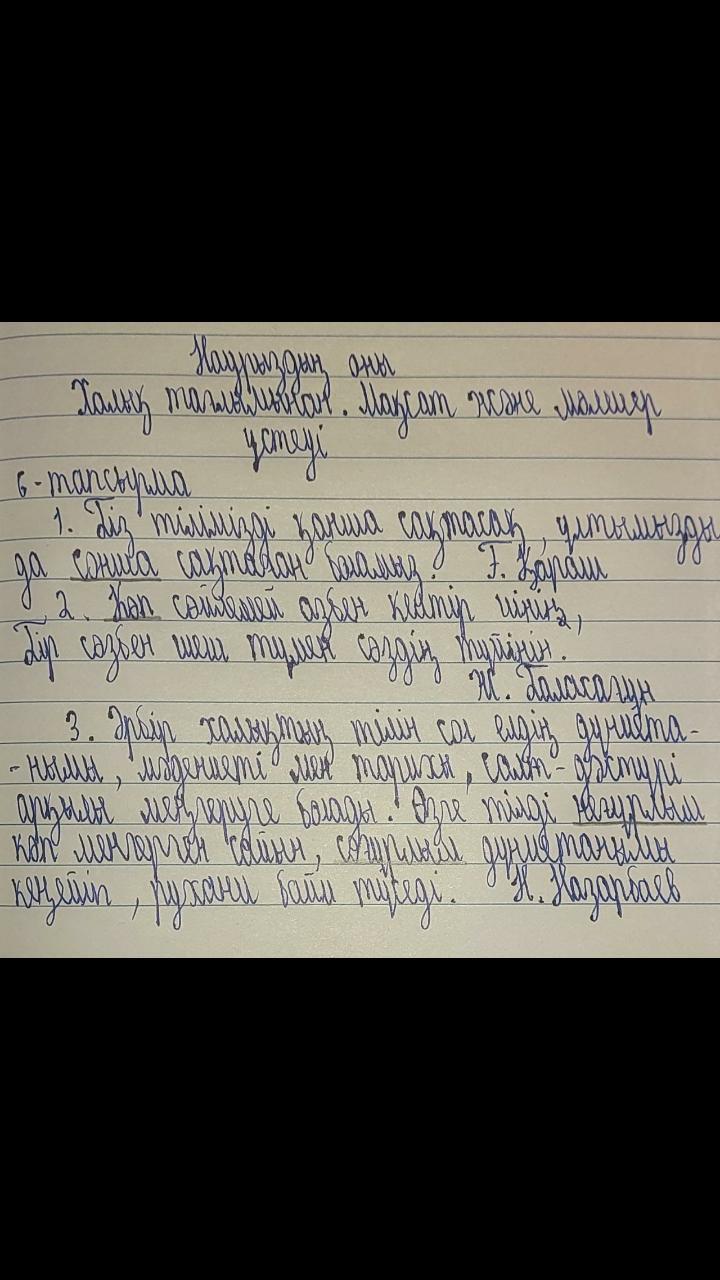 Наурыздың оны
Халық тағлымынан. Мақсат және мөлшер
үстеуі
6-тапсырма
1. Біз тілімізді қанша сақтасақ, ұлтымызды
да сонша сақтаған боламыз. Ғ. Қараш
2. Көп сөйлемей азбен кептір иініңе,
Бір сөзбен шеш түмен сөздің түйінін.
Ж. Баласағұн
3. Әрбір халықтың тілін сол елдің дүниета-
-нымы, мәдениеті мен тарихы, салт-дәстүрі
арқылы меңгеруге болады. Өзге тілді неғұрлым
көп меңгерген сайын, соғұрлым дүниетанымы
кеңейіп, рухани байи түседі. Н. Назарбаев